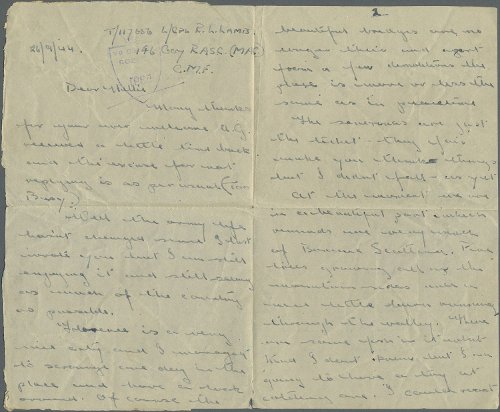 T/117686 L/Cpl R.L. LAMB.
26/9/44. 146 Coy R.A.S.C. (M.A.C)
C.M.F.
Dear Nellie
Many thanks
for your ever welcome A.G.
received a little time back
and the excuse for not
replying is as per usual (Too
Busy).
Well the army life
hasn't changed since I last
wrote you but I am still
enjoying it and still seeing
as much of the country
as possible.
Florence is a very
nice city and I managed
to scrounge one day in the
place and have a look
around. Of course the
2
beautiful bridges are no
longer there and apart
from a few demolitions the
place is more or less the
same as in peacetime
The senoritas are just
the ticket - they
make you think things
but I didn't fall - as yet
At the moment we are
in a beautiful part which
reminds one very much
of Bonnie Scotland. Pine
trees growing all up the
mountain sides and a
nice little river running
through the valley. There
are some fish in it what
kind I don't know but I am
going to have a try at
catching one. I could not